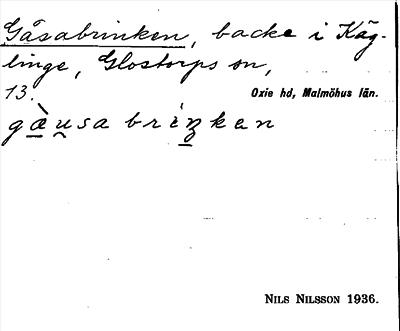 Gåsabrinken, backe i Käg-
linge, Glostorps sn,
13. Oxie hd, Malmöhus län.
gæ̀u̯sa brìŋkən
NILS NILSSON 1936.